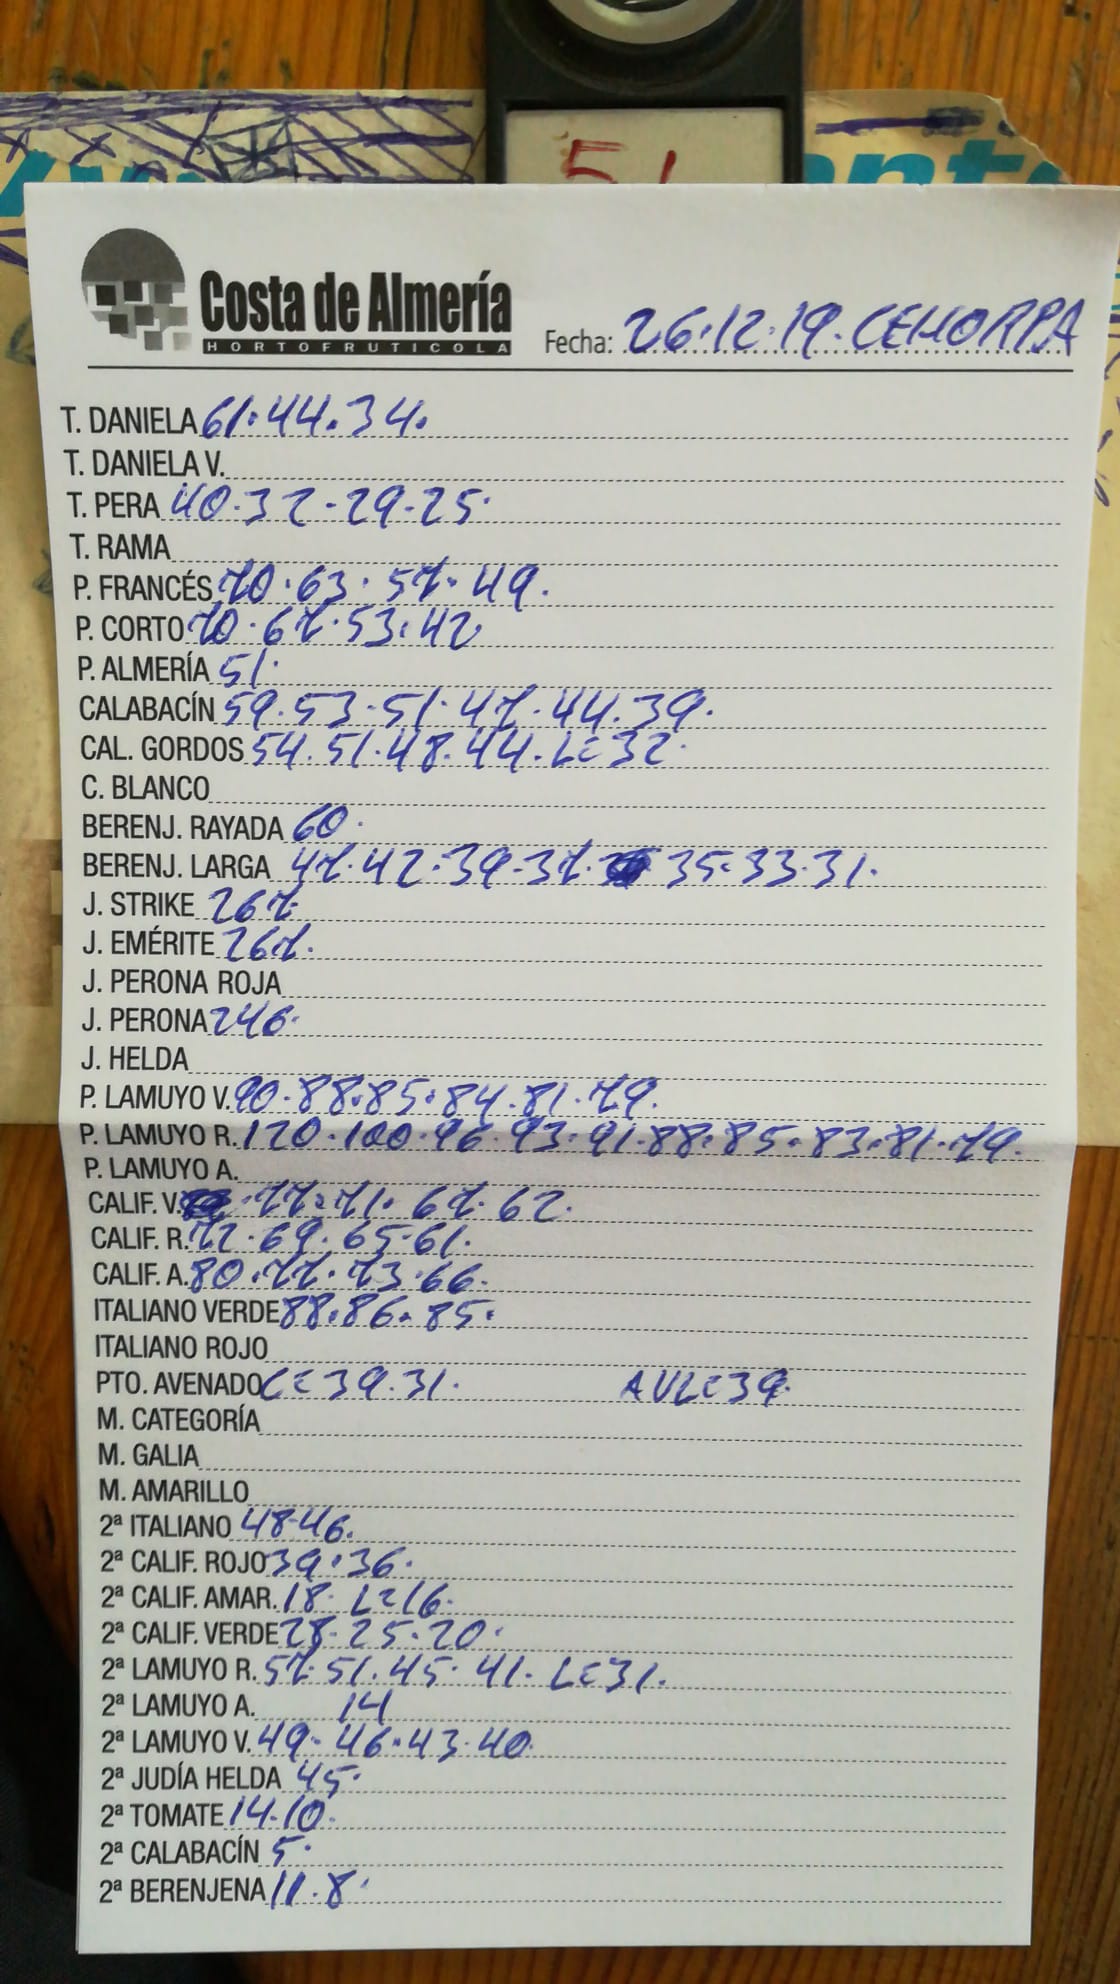 51
Costa de Almería
HORTOFRUTICOLA
Fecha: 26.12.19. CEHORPA
T. DANIELA 61.44.34.
T. DANIELA V.
T. PERA 40.32-29-25.
T. RAMA
P. FRANCÉS 70.63.57.49.
P. CORTO 70.67.53.42
P. ALMERÍA 51.
CALABACÍN 59.53.51.47.44.39.
CAL. GORDOS 54.51.48.44.LE32.
C. BLANCO
BERENJ. RAYADA 60.
BERENJ. LARGA 47.42.39-37. 35.33.31.
J. STRIKE 267.
J. EMÉRITE 267.
J. PERONA ROJA
J. PERONA 246.
J. HELDA
P. LAMUYO V. 90.88.85.84.81.79.
P. LAMUYO R. 120.100.96.93.91.88.85.83.81.79.
P. LAMUYO A.
CALIF. V. .77.71.67.62.
CALIF. R. 72.69.65-61.
CALIF. A. 80.77.73.66.
ITALIANO VERDE 88.86.85.
ITALIANO ROJO
PTO. AVENADO LE39.31. AVLE39.
M. CATEGORÍA
M. GALIA
M. AMARILLO
2ª ITALIANO 48-46.
2ª CALIF. ROJO 39.36.
2ª CALIF. AMAR. 18. LE16.
2ª CALIF. VERDE 28-25.20.
2ª LAMUYO R. 57.51.45.41. LE31.
2ª LAMUYO A. 14
2ª LAMUYO V. 49-46.43.40.
2ª JUDÍA HELDA 45.
2ª TOMATE 14.10.
2ª CALABACÍN 5.
2ª BERENJENA 11.8.